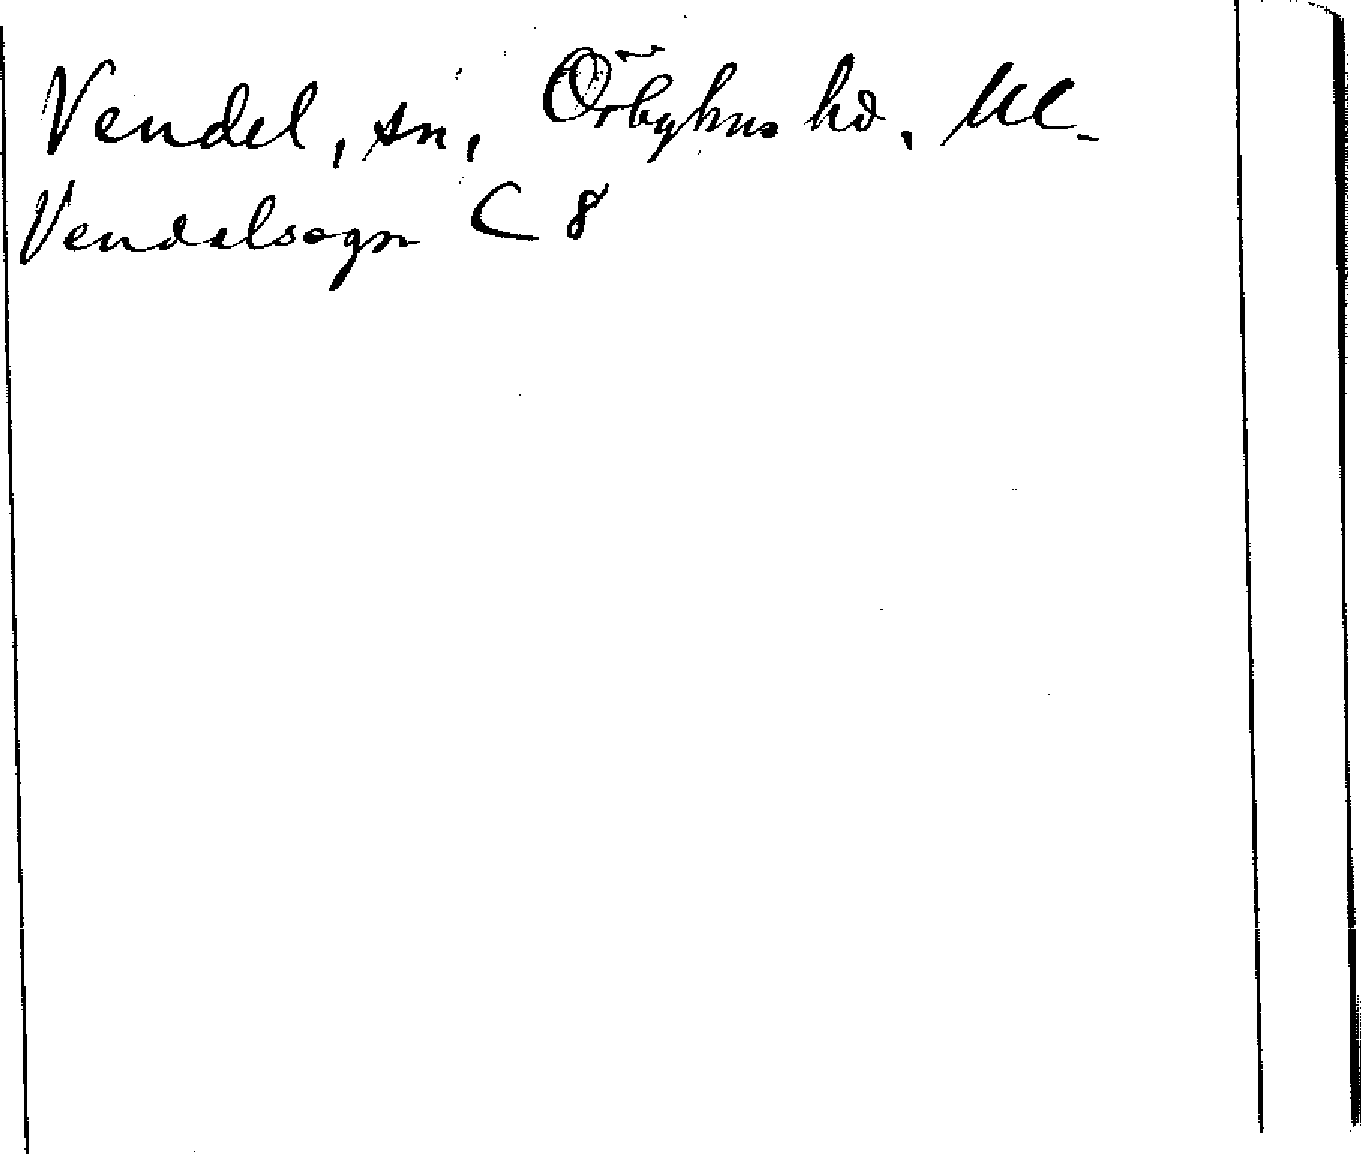 Vendel, sn, Örbyhus hd, Ul.
Vendelsogn C 8